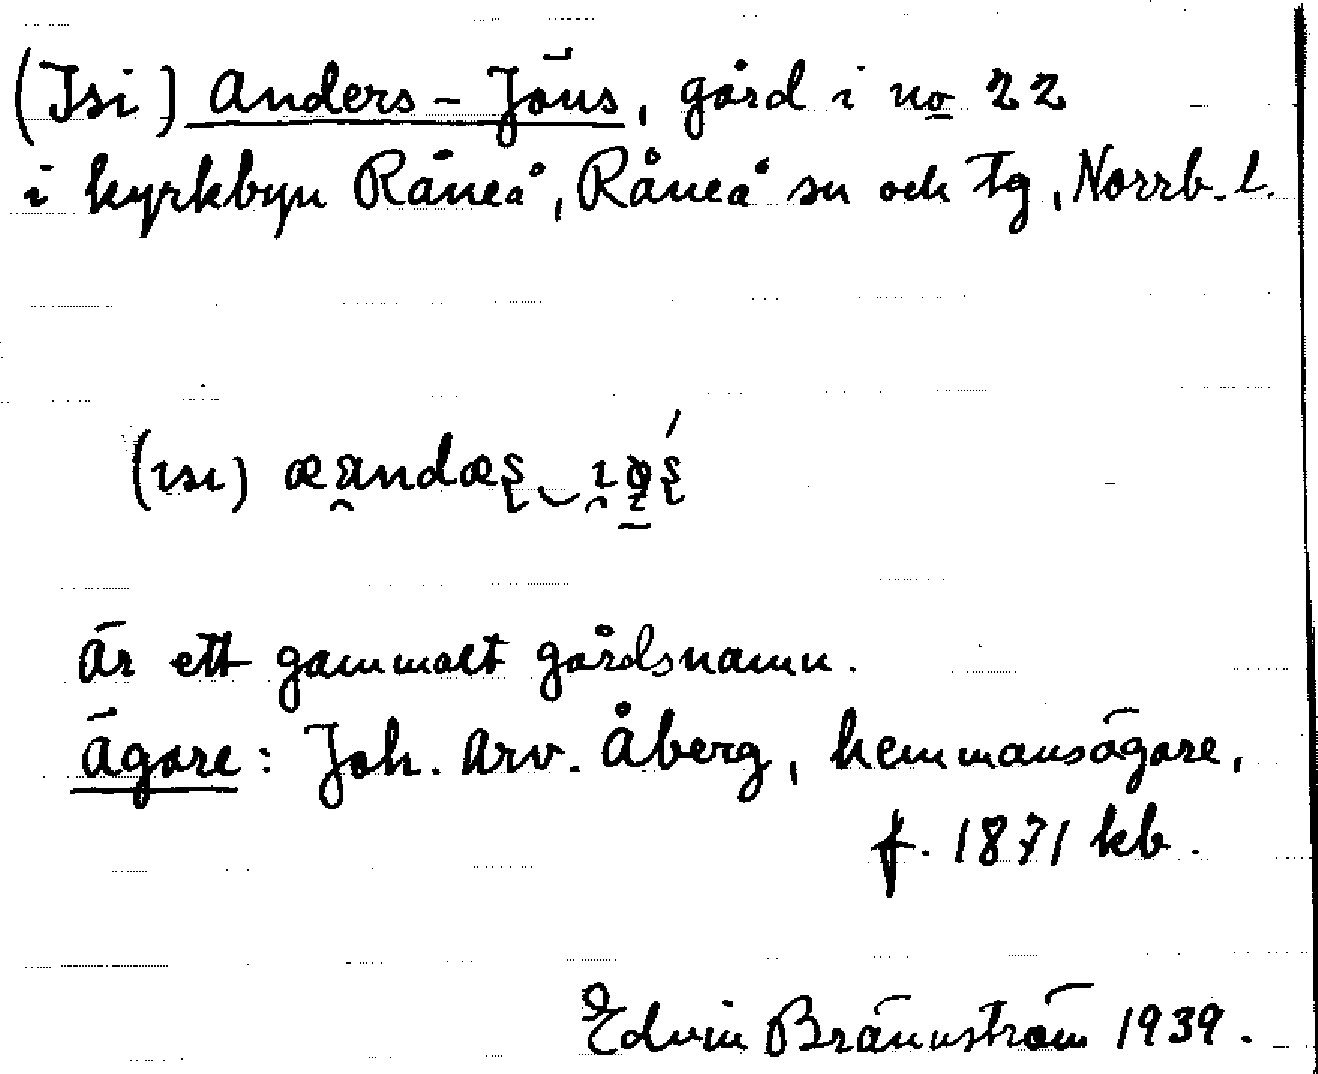 (Isi) Anders-Jöns, gård i no 22
i kyrkbyn Råneå, Råneå sn och tg, Norrb. l.
(ısı)
Är ett gammalt gårdsnamn.
Ägare: Joh. Arv. Åberg, hemmansägare,
f. 1871 kb.
Edvin Brännström 1939.